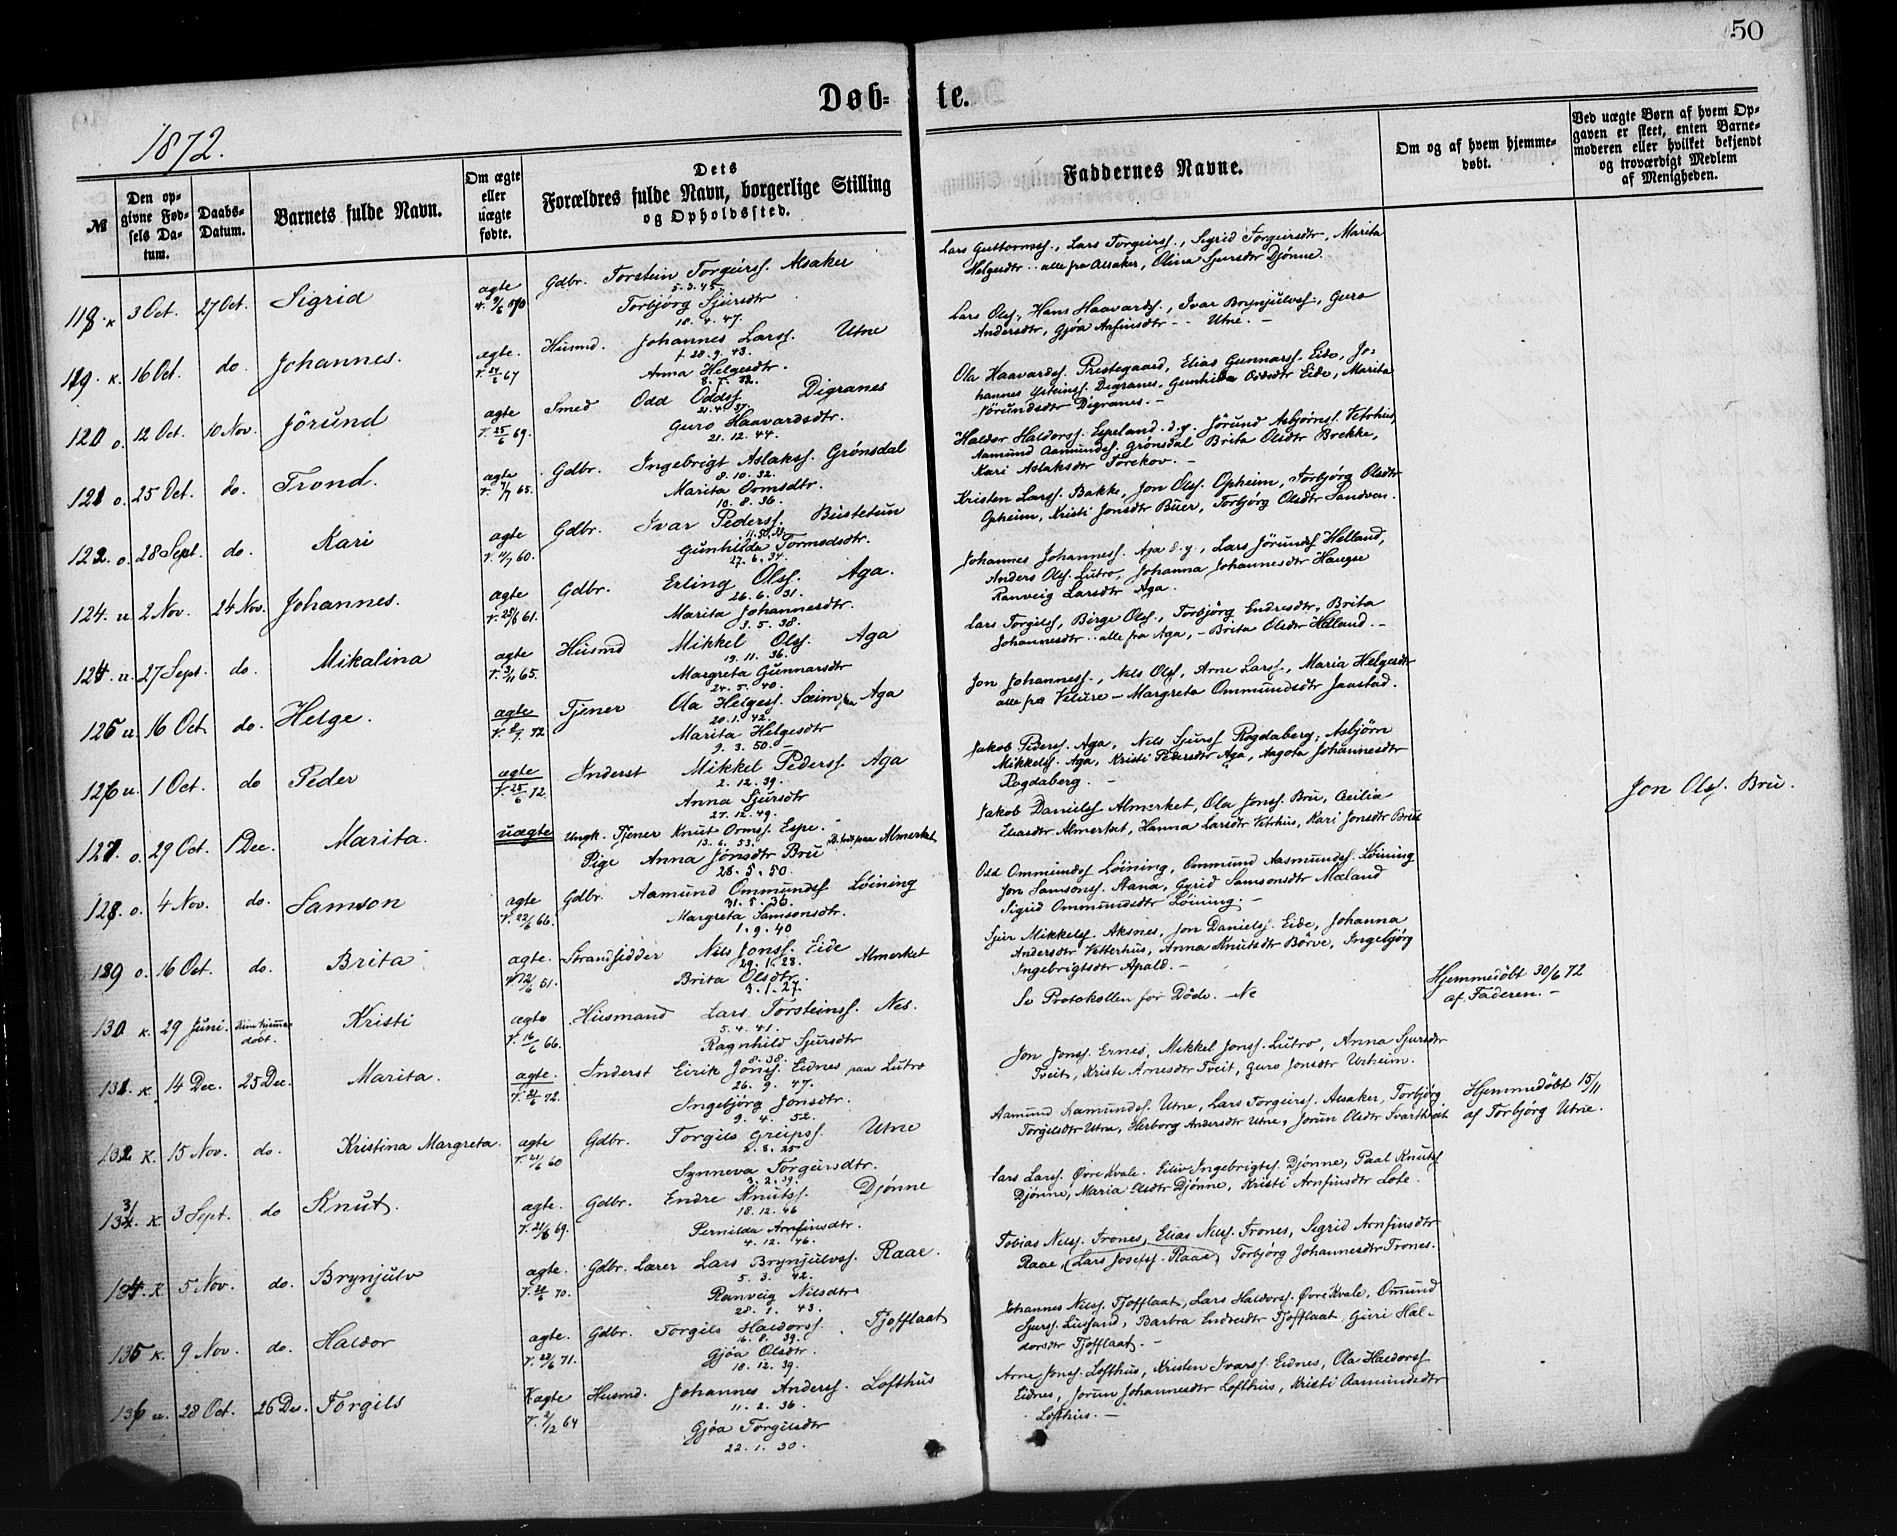 50
Døb= te.
1872.
№
Den opgivne Fødsels Datum.
Daabs-Datum.
Barnets fulde Navn.
Om ægte eller uægte fødte.
Dets Forældres fulde Navn, borgerlige Stilling og Opholdssted.
Faddernes Navne.
Om og af hvem hjemmedøbt.
Ved uægte Børn af hvem Opgaven er skeet, enten Barnemoderen eller hvilket bekjendt og troværdigt Medlem af Menigheden.
118. K 3 Oct. 27 Oct. Sigrid ægte Gdbr. Torstein Torgeirss. Alsaker
5.3.45
Torbjørg Sjursdtr
18.4.47.
Lars Guttormss., Lars Torgeirss., Sigrid Torgeirsdtr, Marita
Helgesdtr .. alle fra Alsaker, Olina Sjursdtr Djønne.
119. K. 16 Oct. do. Johannes. ægte. Husmd. Johannes Larss. Utne
f. 28.9.43.
Anna Helgesdtr.
Lars Olss., Hans Haavardss., Ivar Brynjulvss., Guro
Andersdtr, Gjøa Arfinsdtr - - Utne. -
120 o. 12 Oct. 10 Nov. Jörund ægte V. 25/6 69. Smed Odd Oddss. Digranes
21.4.37.
Guro Haavardsdtr.
21.12.44.
Ola Haavardss. Prestegaard, Elias Gunnarss. Eide, Jo=
hannes Osteinss. Digranes, Gunhilda Oddsdtr Eide, Marita
Jörundsdtr Digranes. -
121 o. 25 Oct. do. Trond. ægte Gdbr. Ingebrigt Aslakss. Grønsdal
8.10.32.
Marita Ormsdtr.
10.8.36.
Haldor Haldorss. Espeland d.y. Jörund Asbjørnss. Vetrhus,
Aamund Aamundss. Grønsdal Brita Olsdtr Brekke,
Kari Aslaksdtr Torekov. -
122. o. 28 Sept. do. Kari ægte V. 11/7 60. Gdbr. Ivar Pederss. Bustetun
Gunhilda Tormodsdtr.
27.6.34.
Kristen Larss. Bakke, Jon Olss. Opheim, Torbjørg Olsdtr
Opheim, Kristi Jonsdtr Buer, Torbjørg Olsdtr Sandven.
124. u. 2 Nov. 24 Nov. Johannes. ægte Gdbr. Erling Olss. Aga.
26.6.31.
Marita Johannesdtr.
3.5.38.
Johannes Johanness. Aga d.y., Lars Jörundss Helland,
Anders Olss. Lutro, Johanna Johannesdtr Haugse
Ranveig Larsdtr Aga.
124. u. 27 Sept. do. Mikalina ægte Husmd Mikkel Olss. Aga
19.11.36.
Margreta Gunnarsdtr
24.5.40.
Lars Torgilss., Birge Olss., Torbjörg Endresdtr, Brita
Johannesdtr .. alle fra Aga, - Brita Olsdtr Helland. -
125 u. 16 Oct do. Helge. ægte Tjener Ola Helgess. Sæim, Aga
20.1.42.
Marita Helgesdtr
9.3.50. -
Jon Johanness., Nils Olss., Arne Larss., Maria Helgesdtr
alle fra Velure - Margreta Ommundsdtr Jaastad.
126 u. 1 Oct. do Peder ægte V. 25/6 72. Inderst Mikkel Pederss. Aga
2.12.39.
Anna Sjursdtr
27.12.49.
Jakob Pederss. Aga, Nils Sjurss Rogdaberg, Asbjörn
Mikkelss. Aga, Kristi Pedersdtr Aga, Angota Johannesdtr
Rogdaberg. -
127. o. 29 Oct. 1 Dec. Marita. uægte Ungk. Tjener Knut Ormss. Espe.
13.6.53.
Pige Anna Jonsdtr Bru Almerket
28.5.50.
Jakob Danielss Almerket, Ola Jonss. Bru, Cecilia
Eliasdtr Almerket, Hanna Larsdtr Vetrhus, Kari Jonsdtr
Jon Olss. Bru.
128. o. 4 Nov. do. Samson ægte V. 22/6 66. Gdbr. Aamund Ommundss Löining
31.5.36.
Margreta Samsonsdtr.
1.9.40
Odd Ommundss Löining, Ommund Aasmundss. Köining
Jon Samsonss. Stana, Gyrid Samsonsdtr Mæland
Sigrid Ommundsdtr Löining. -
129 o. 16 Oct. do. Brita ægte. Strandsidder Nils Jonss. Eide Almerket
29.1.23.
Brita Olsdtr.
3.1.27.
Sjur Mikkelss. Aksnes, Jon Danielss. Eide, Johanna
Andersdtr Vetterhus, Anna Knutsdtr Börve, Ingebjörg
Ingebrigtsdtr Apald. -
130 K. 29 Juni. Kun hjemmedøbt. Kristi ægte V. 16/6 66. Husmand Lars Torsteinss. Nes.
5.4.41.
Ragnhild Sjursdtr
9.8.38.
Se Protokollen for Döde. -
Hjemmedöbt 30/6 72
af Faderen. -
131. K. 14 Dec. 25 Dec. Marita. ægte. Inderst Eirik Jonss. Eidnes paa Lutro
26.9.47.
Ingebjörg Jonsdtr.
9.4.52.
Jon Jonss. Ernes, Mikkel Jonss. Lutro, Anna Sjursdtr
Tveit, Kristi Arnesdtr Tveit, Guro Jonsdtr Urheim.
132 K. 15 Nov. do. Kristina Margreta. ægte V. 21/6 60 Gdbr. Torgils Greipss. Utne
2.8.25
Synneva Torgeirsdtr.
3.2.39.
Aamund Aamundss. Utne, Lars Torgeirss. Alsaker, Torbjörg
Torgilsdtr Utne, Herborg Andersdtr Utne, Jorun Olsdtr Svartveit
Hjemmedøbt 15/11
af Torbjörg Utne.
133. K. 3 Sept. do Knut. ægte. V. 21/6 69. Gdbr. Endre Knutss. Djönne
18.12.46
Pernilda Arnfinsdtr.
4.12.46.
Lars Larss. Øvre Kvale. Eiliv Ingebrigtss. Djönne, Paal Knutss
Djönne, Maria Olsdtr Djönne, Kristi Arnfinsdtr Lote.
134. K. 5 Nov. do. Brynjulv ægte. Gdbr. Lærer Lars Brynjulvss. Raae.
5.3.42.
Ranveig Nilsdtr
28.1.43.
Tobias Nilss. Trones, Elias Nilss. Trones, Sigrid Arnfinsdtr
Raae, (Lars Josefss. Raae), Torbjörg Johannesdtr Trones.
135 K. 9 Nov. do. Haldor ægte. Gdbr. Torgils Haldorss. Tjofflaat
16.8.39.
Gjöa Olsdtr.
10.12.39.
Johannes Nilss. Tjofflaat, Lars Haldorss. Øvre Kvale, Omund
Sjurss. Liusand, Barbra Endresdtr Tjofflaat, Guri Hal-
dorsdtr Tjofflaat. -
136 u. 28 Oct. 26 Dec. Torgils ægte V. 2/2 64 Husmd. Johannes Anderss. Lofthus
11.2.36.
Gjöa Torgilsdtr
22.1.30.
Arne Jonss. Lofthus, Kristen Ivarss. Eidnes, Ola Haldorss
Eidnes, Jorun Johannesdtr Lofthus, Kristi Aamundsdtr
Lofthus. -